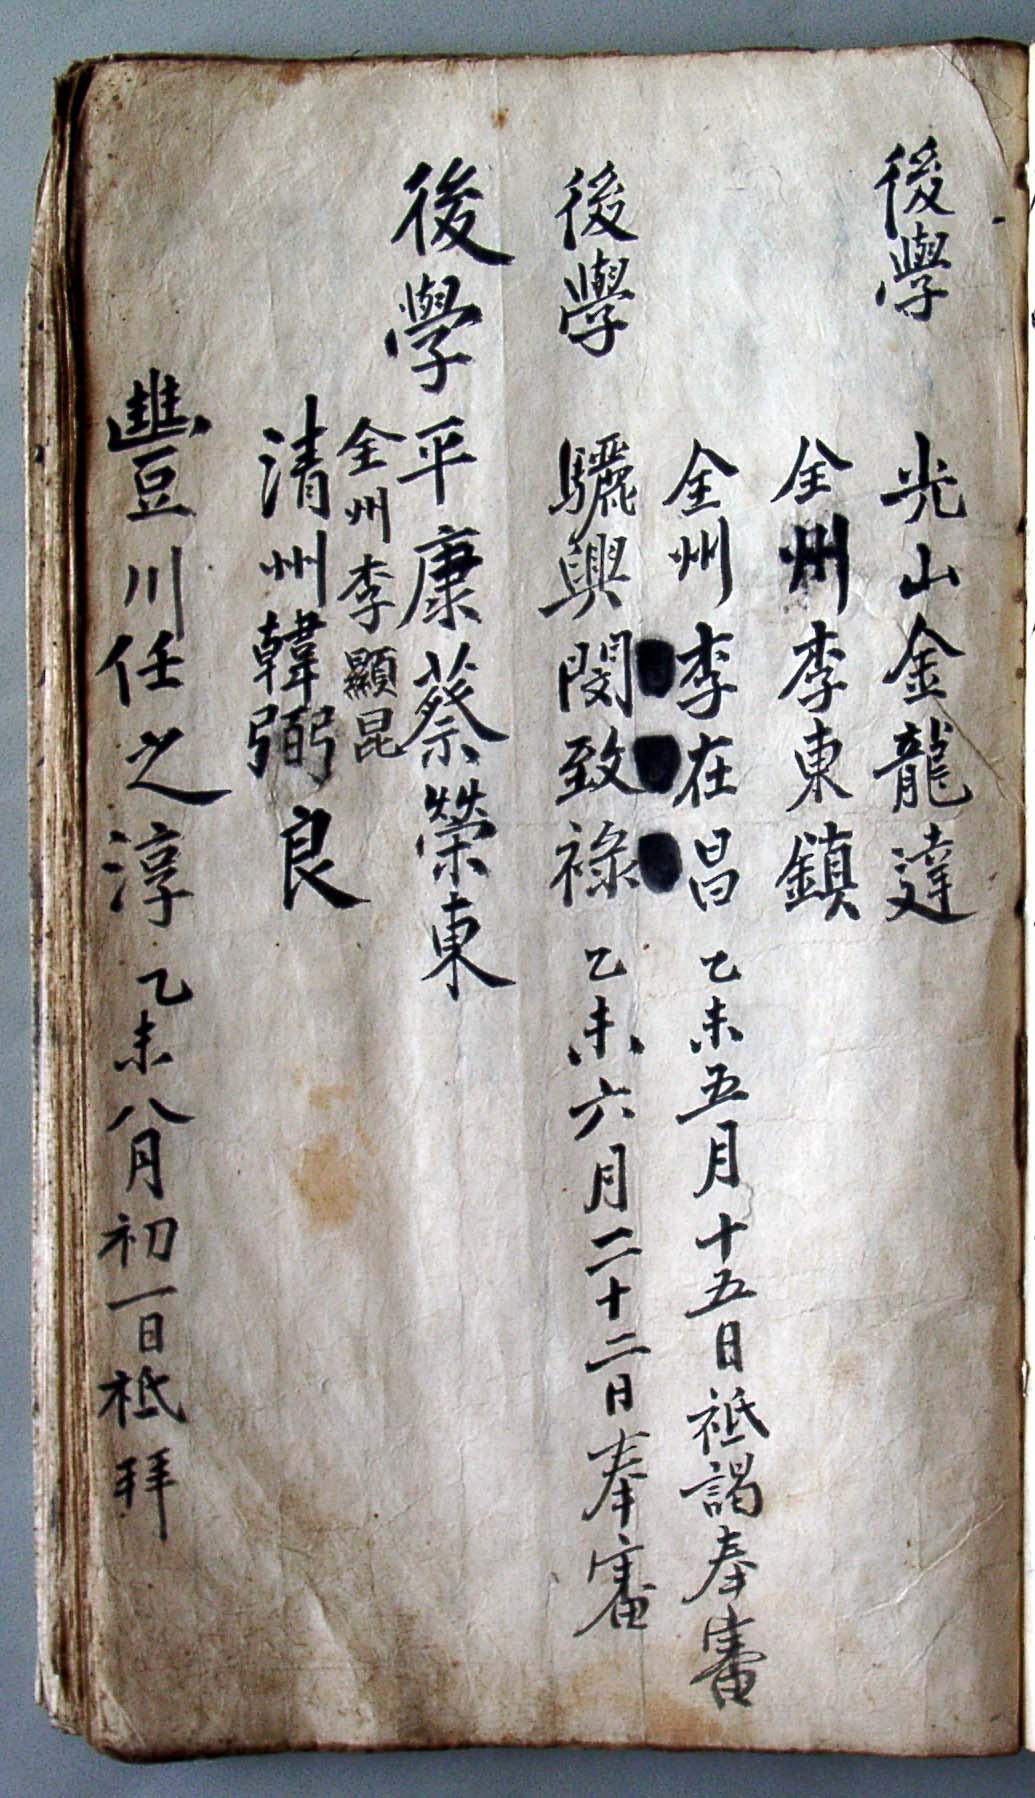 後學 光山金龍達
全州李東鎮
全州李在昌 乙未五月十五日祗謁奉審
後學 驪興閔致祿 乙未六月二十二日奉審
後學平康蔡榮東
全州李顯昆
清州韓弼良
豊川任之淳乙未八月初一日祗拜